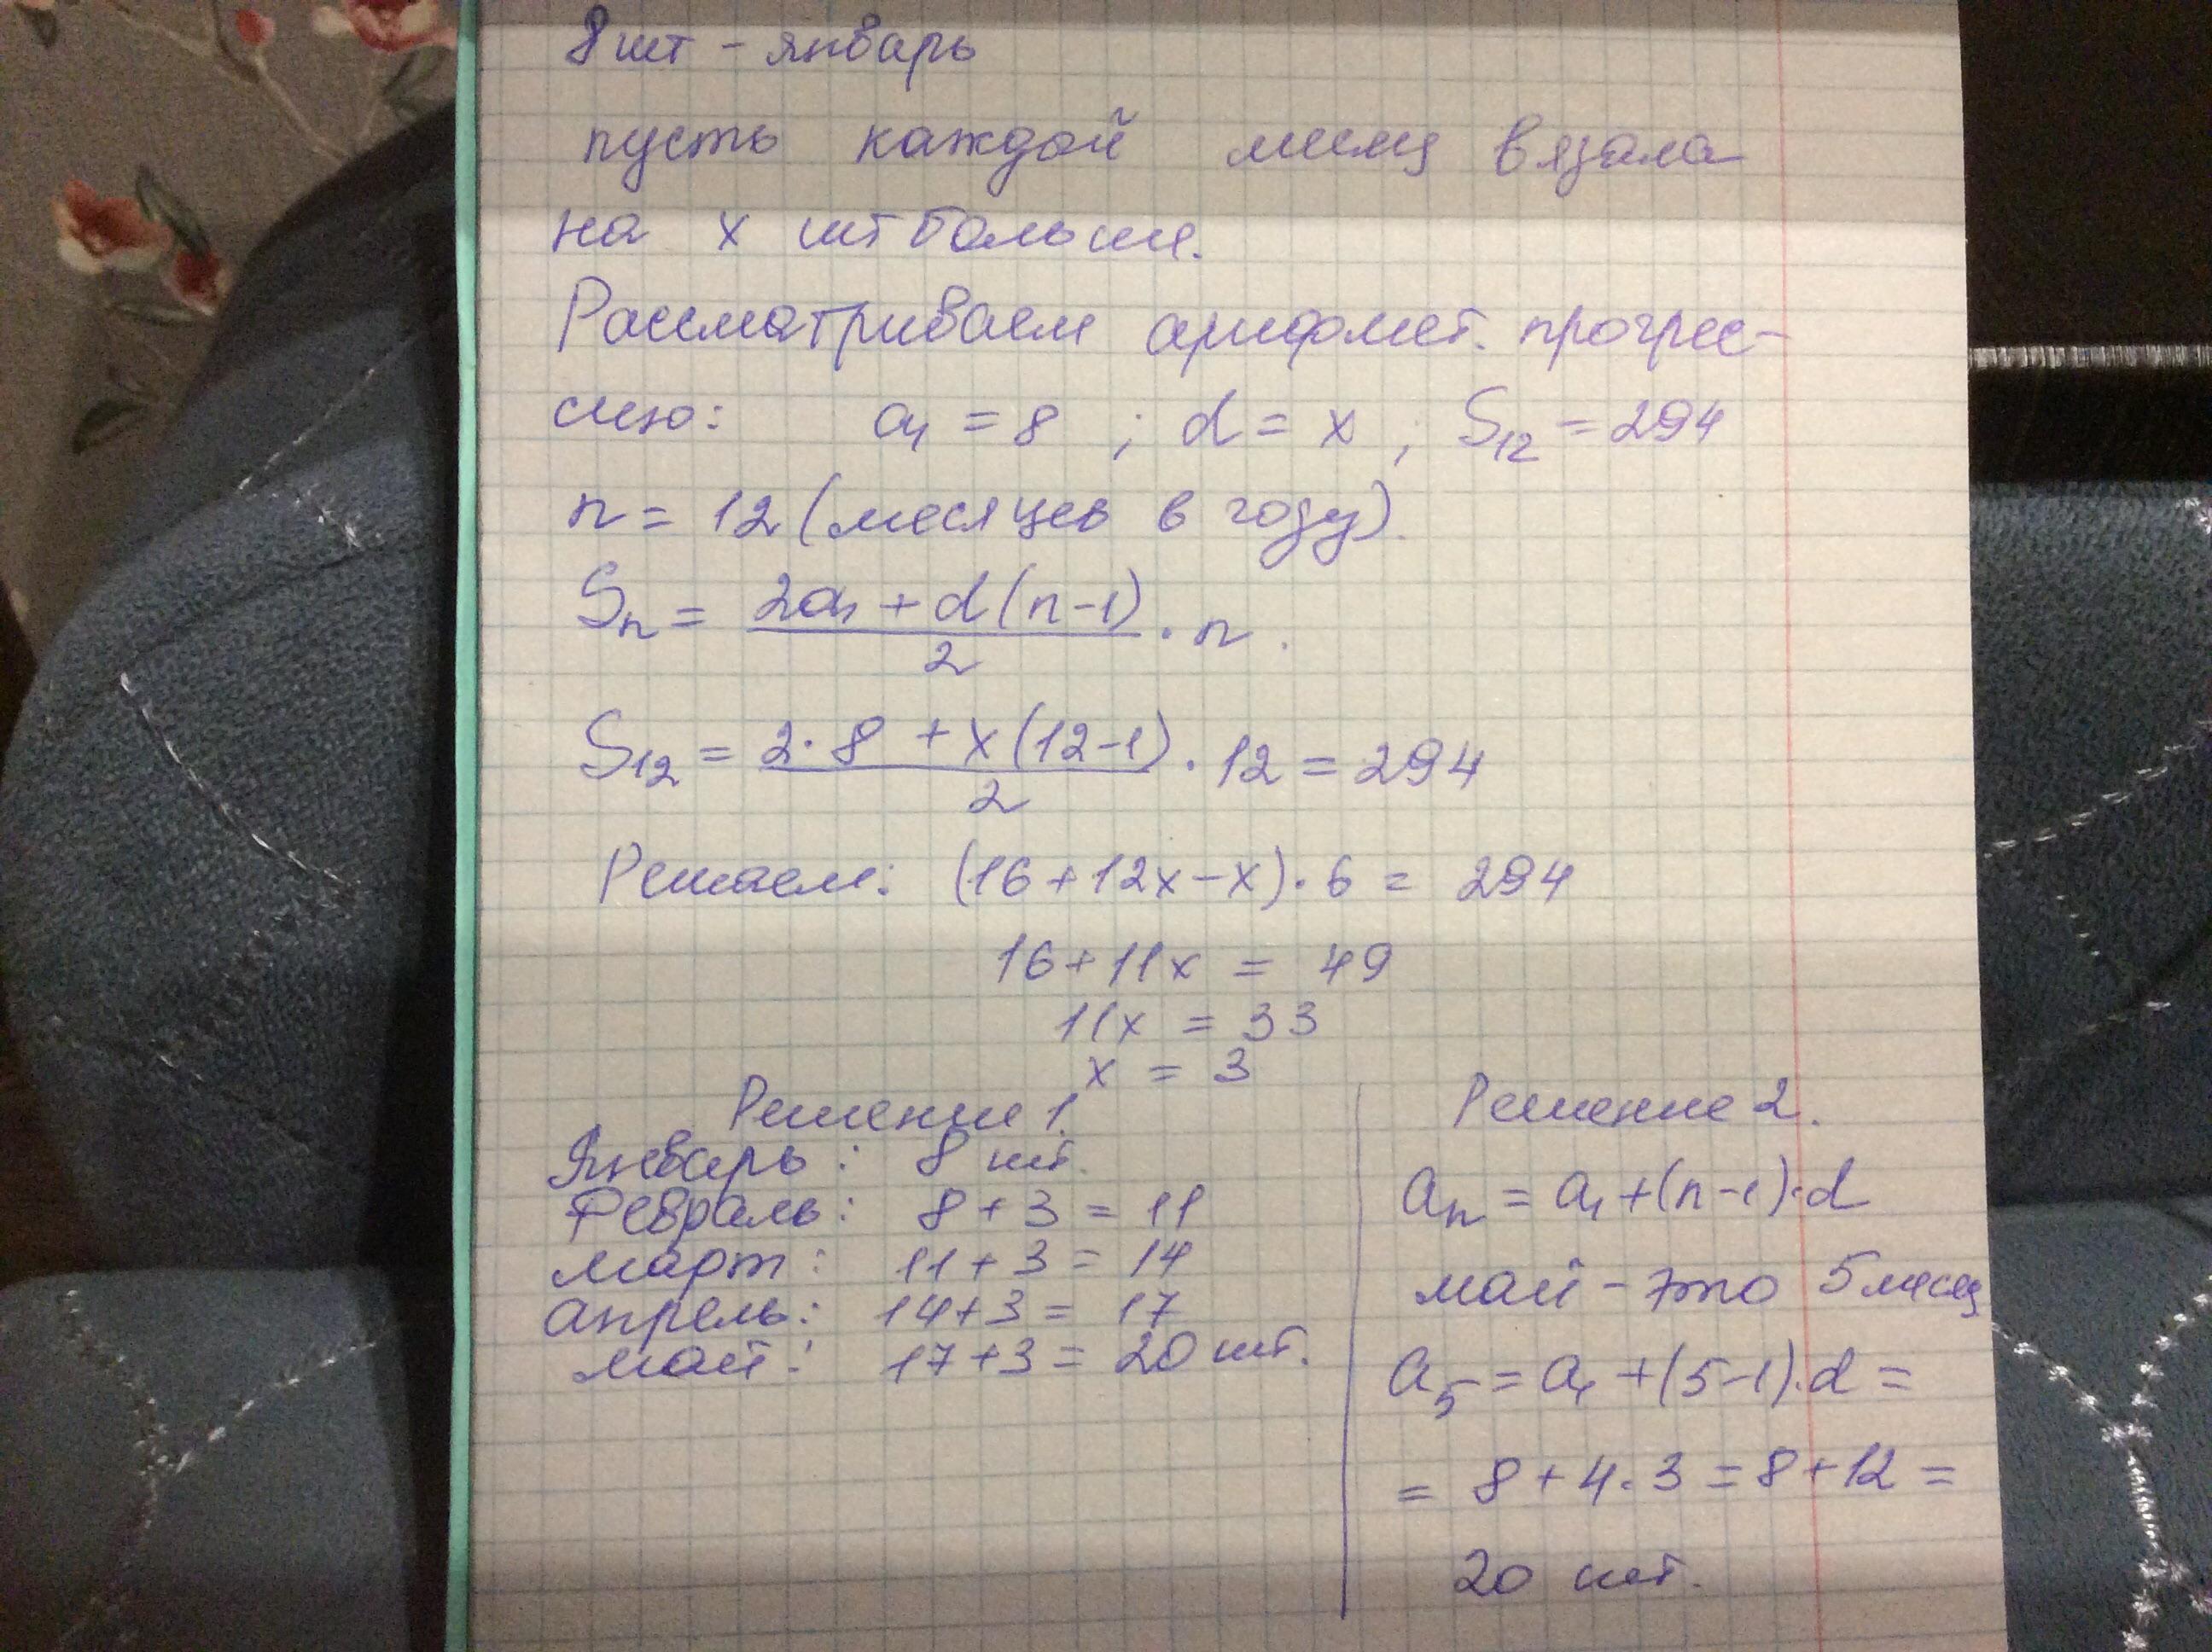 8 шт - январь
пусть каждой месяц вязала
на x шт больше.
Рассматриваем арифмет. прогрес-
сию: a₁ = 8 ; d = x ; S₁₂ = 294
n = 12 (месяцев в году).
Sₙ = (2a₁ + d(n-1))/2 · n.
S₁₂ = (2·8 + x(12-1))/2 · 12 = 294
Решаем: (16+12x-x)·6 = 294
16+11x = 49
11x = 33
x = 3
Решение 1.
Январь: 8 шт.
Февраль: 8 + 3 = 11
март: 11 + 3 = 14
апрель: 14+3 = 17
май: 17+3 = 20 шт.
Решение 2.
aₙ = a₁ +(n-1)·d
май - это 5 месяц
a₅ = a₁ +(5-1)·d =
= 8 + 4·3 = 8 + 12 =
20 шт.